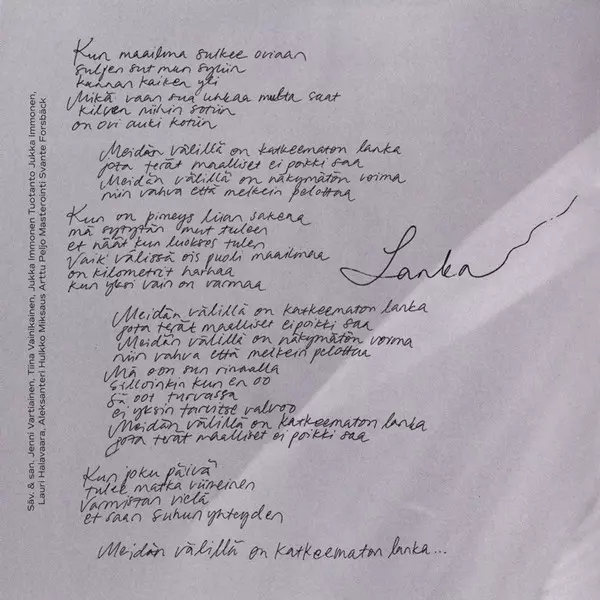 Kun maailma sulkee oviaan
suljen sut mun syliin
kannan kaiken yli
Mikä vaan sua uhkaa multa saat
kilven niihin sotiin
on ovi auki kotiin
Meidän välillä on katkeematon lanka
jota terät maalliset ei poikki saa
Meidän välillä on näkymätön voima
niin vahva että melkein pelottaa
Kun on pimeys liian sakeaa
mä sytytän mut tuleen
et näät kun luokses tulen
Vaik välissä ois puoli maailmaa
on kilometrit harhaa
kun yksi vain on varmaa
Lanka
Meidän välillä on katkeematon lanka
jota terät maalliset ei poikki saa
Meidän välillä on näkymätön voima
niin vahva että melkein pelottaa
Mä oon sun rinnalla
silloinkin kun en oo
Sä oot turvassa
ei yksin tarvitse valvoo
Meidän välillä on katkeematon lanka
jota terät maalliset ei poikki saa
Kun joku päivä
tulee matka viimeinen
varmistan vielä
et saan suhun yhteyden
Meidän välillä on katkeematon lanka...
Säv. & san. Jenni Vartiainen, Tiina Vainikainen, Jukka Immonen Tuotanto Jukka Immonen,
Lauri Halavaara, Aleksanteri Hulkko Miksaus Arttu Peljo Masterointi Svante Forsbäck